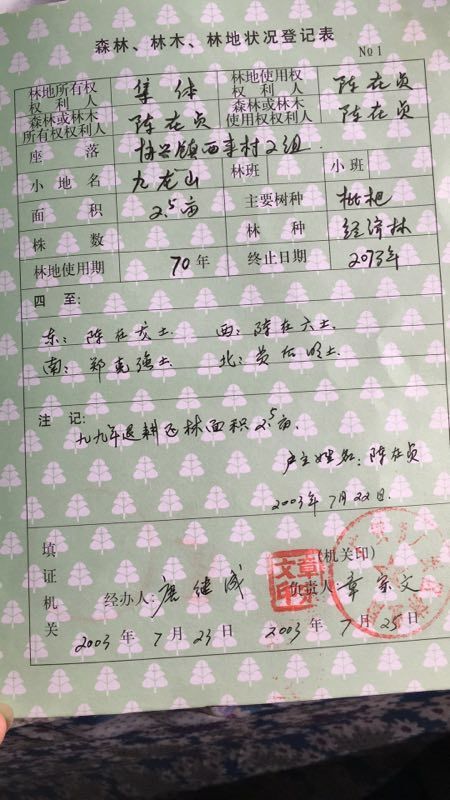 森林、林木、林地状况登记表
№1
林地所有权权利人 集体 林地使用权权利人 陈在贞
森林或林木所有权权利人 陈在贞 森林或林木使用权权利人 陈在贞
座落 协兴镇西来村2组
小地名 九龙山 林班 小班
面积 2.5亩 主要树种 枇杷
株数 林种 经济林
林地使用期 70年 终止日期 2073年
四至:
东：陈在发土 西：陈在六土
南：郑克强土 北：黄后明土
注记:
九九年退耕还林面积2.5亩.
户主姓名：陈在贞
2003年7月22日.
填证机关 (机关印)
经办人: 唐继成 负责人: 章家文
2003年7月23日 2003年7月25日